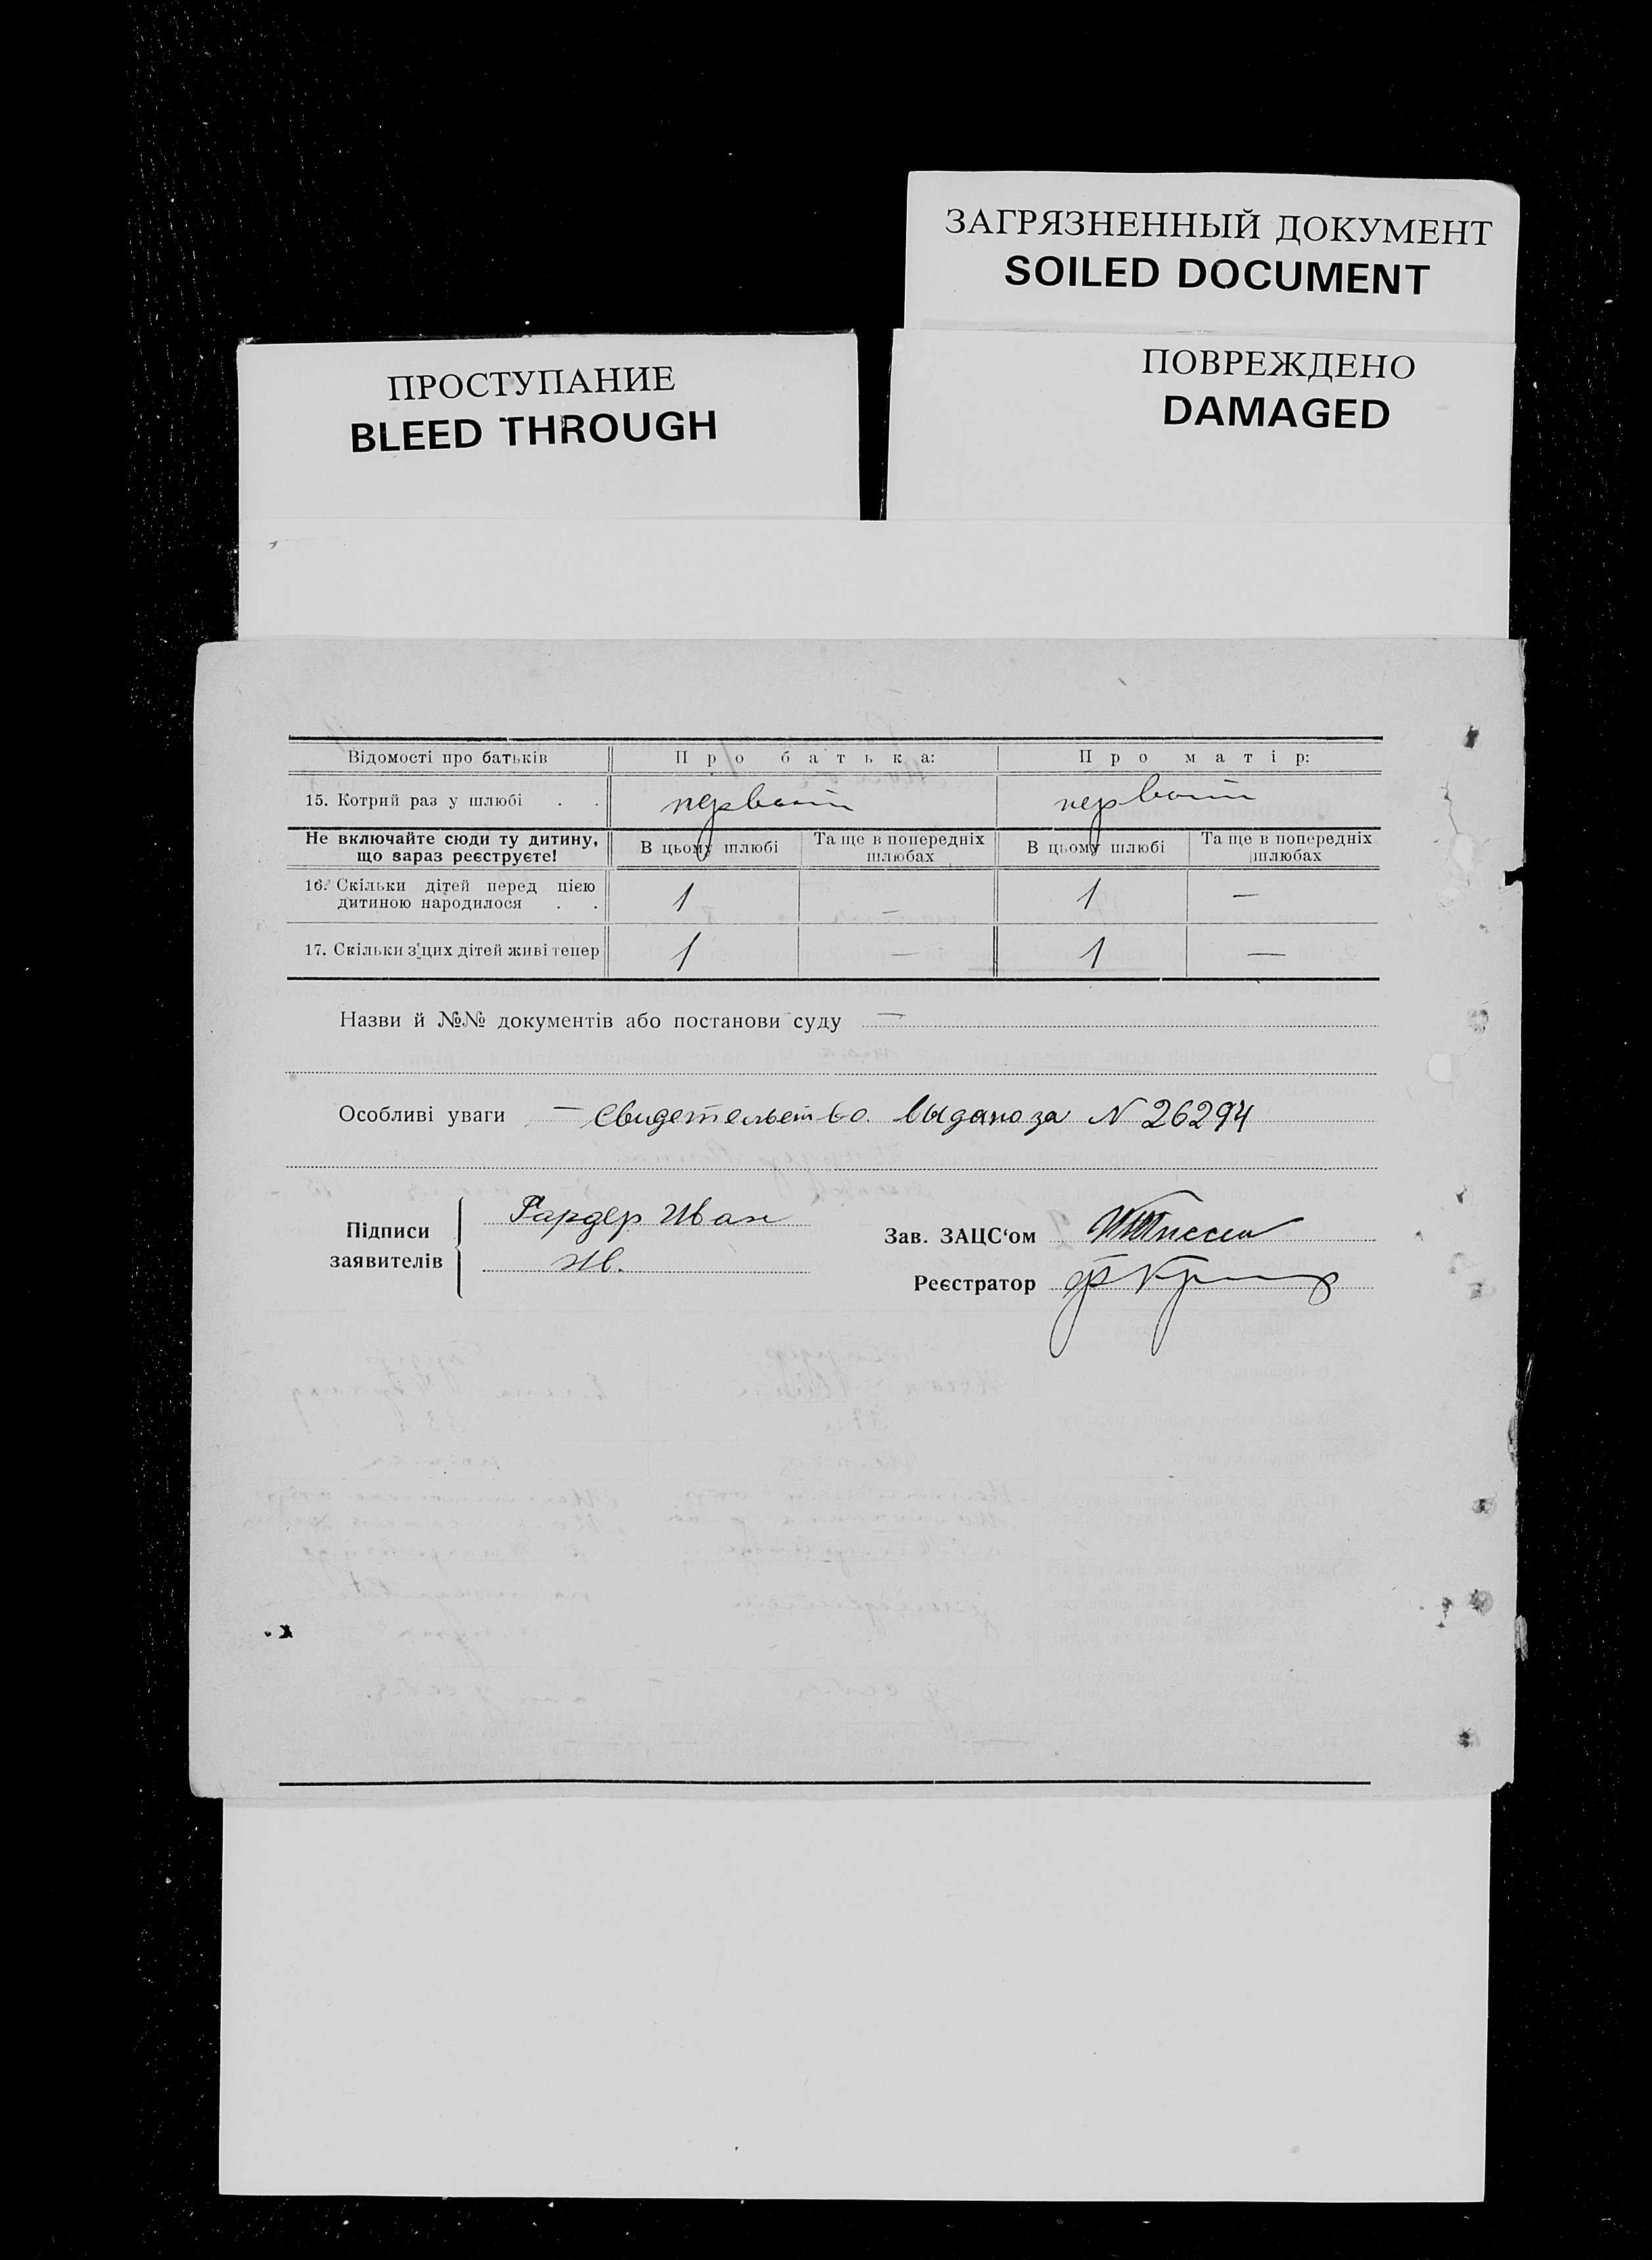 ЗАГРЯЗНЕННЫЙ ДОКУМЕНТ
SOILED DOCUMENT
ПРОСТУПАНИЕ
BLEED THROUGH
ПОВРЕЖДЕНО
DAMAGED
Відомості про батьків Про батька: Про матір:
15. Котрий раз у шлюбі . . первый первый
Не включайте сюди ту дитину, що зараз реєструєте! В цьому шлюбі Та ще в попередніх шлюбах В цьому шлюбі Та ще в попередніх шлюбах
16. Скільки дітей перед цією дитиною народилося . . 1 — 1 —
17. Скільки з цих дітей живі тепер 1 — 1 —
Назви й №№ документів або постанови суду —
Особливі уваги — свидетельство выдано за N 26294
Підписи заявителів
Гардер Иван
Ив.
Зав. ЗАЦС'ом
Реєстратор